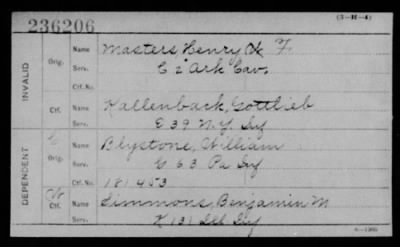 236206
(3-H-4)
INVALID
Orig.
Name Masters, Henry W. F.
Serv. C 2 Ark Cav.
Ctf. No.
Ctf.
Name Kallenback, Gottlieb
Serv. E 39 N.Y. Inf
DEPENDENT
Orig.
Name Blystone, William
Serv. G 63 Pa Inf
Ctf. No. 181453
Ctf.
Name Simmons, Benjamin M
Serv. K 131 Ill Inf
6-1306